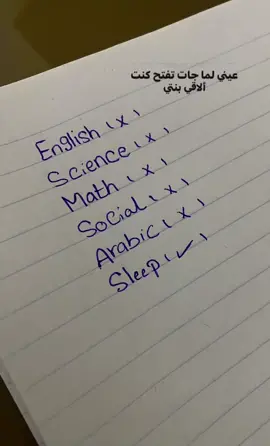 عيني لما جات تفتح كنت
ألاقي بنتي
English (x)
Science (x)
Math (x)
Social (x)
Arabic (x)
Sleep (✓)